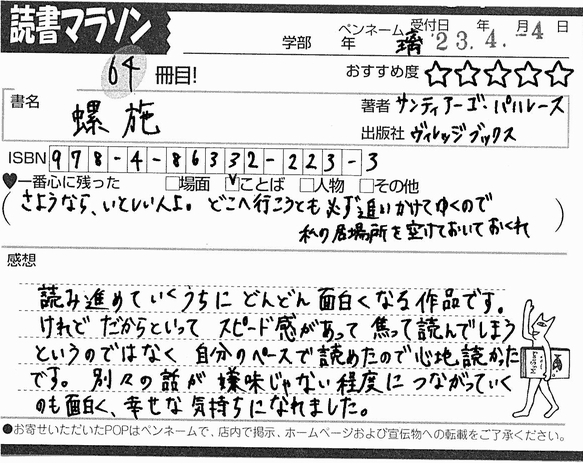 読書マラソン
学部 年 ペンネーム 璃 受付日 年 月 日
'23.4.-4
64冊目!
おすすめ度 ☆☆☆☆☆
書名 螺施
著者 サンティアーゴ・パハーレス
出版社 ヴィレッジブックス
ISBN 978-4-86332-223-3
♥一番心に残った □場面 ☑ことば □人物 □その他
(さようなら、いとしい人よ。どこへ行こうとも必ず追いかけてゆくので
私の居場所を空けておいておくれ)
感想
読み進めていくうちにどんどん面白くなる作品です。
けれどだからといってスピード感があって焦って読んでしまう
というのではなく自分のペースで読めたので心地読かった
です。別々の話が嫌味じゃない程度につながっていく
のも面白く、幸せな気持ちになれました。
●お寄せいただいたPOPはペンネームで、店内で掲示、ホームページおよび宣伝物への転載をご了承ください。